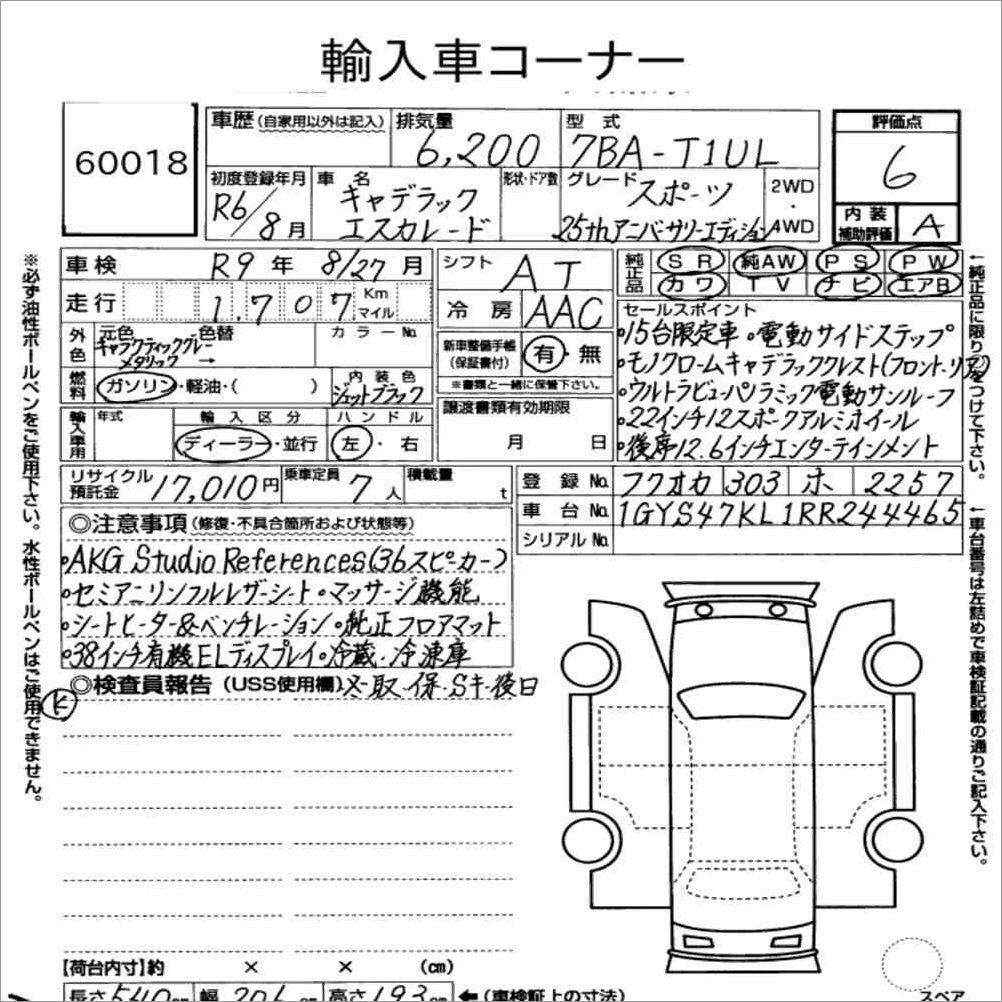 輸入車コーナー
60018
車歴 (自家用以外は記入)
排気量 6,200
型式 7BA-T1UL
評価点 6
内装補助評価 A
初度登録年月 R6/8月
車名 キャデラック エスカレード
形状・ドア数
グレード スポーツ
25thアニバーサリーエディション
2WD・4WD
車検 R9年 8/27月
走行 1.707 Km マイル
シフト AT
冷房 AAC
純正品 SR 純AW PS PW
カワ TV ナビ エアB
外色 元色 色替 カラーNo.
ギャラクティックグレーメタリック →
燃料 ガソリン・軽油・( )
内装色 ジェットブラック
新車整備手帳(保証書付) 有・無
※書類と一緒に保管下さい。
セールスポイント
・15台限定車・電動サイドステップ
・モノクロームキャデラッククレスト(フロント・リア)
・ウルトラビューパノラミック電動サンルーフ
・22インチ12スポークアルミホイール
・後席12.6インチエンターテインメント
輸入車用 年式
輸入区分 ディーラー・並行
ハンドル 左・右
譲渡書類有効期限
月 日
リサイクル預託金 17,010円
乗車定員 7人
積載量 t
登録No. フクオカ 303 ホ 2257
車台No. 1GYS47KL1RR244465
シリアルNo.
◎注意事項(修復・不具合箇所および状態等)
・AKG Studio References(36スピーカー)
・セミアニリンフルレザーシート・マッサージ機能
・シートヒーター&ベンチレーション・純正フロアマット
・38インチ有機ELディスプレイ・冷蔵・冷凍庫
◎検査員報告(USS使用欄) 取・保・Sキ後日
【荷台内寸】約 × × (cm)
長さ540cm 幅206 高さ193cm ←(車検証上の寸法)
スペア
※必ず油性ボールペンをご使用下さい。水性ボールペンはご使用できません。
←純正品に限り○をつけて下さい。
←車台番号は左詰めで車検証記載の通りご記入下さい。